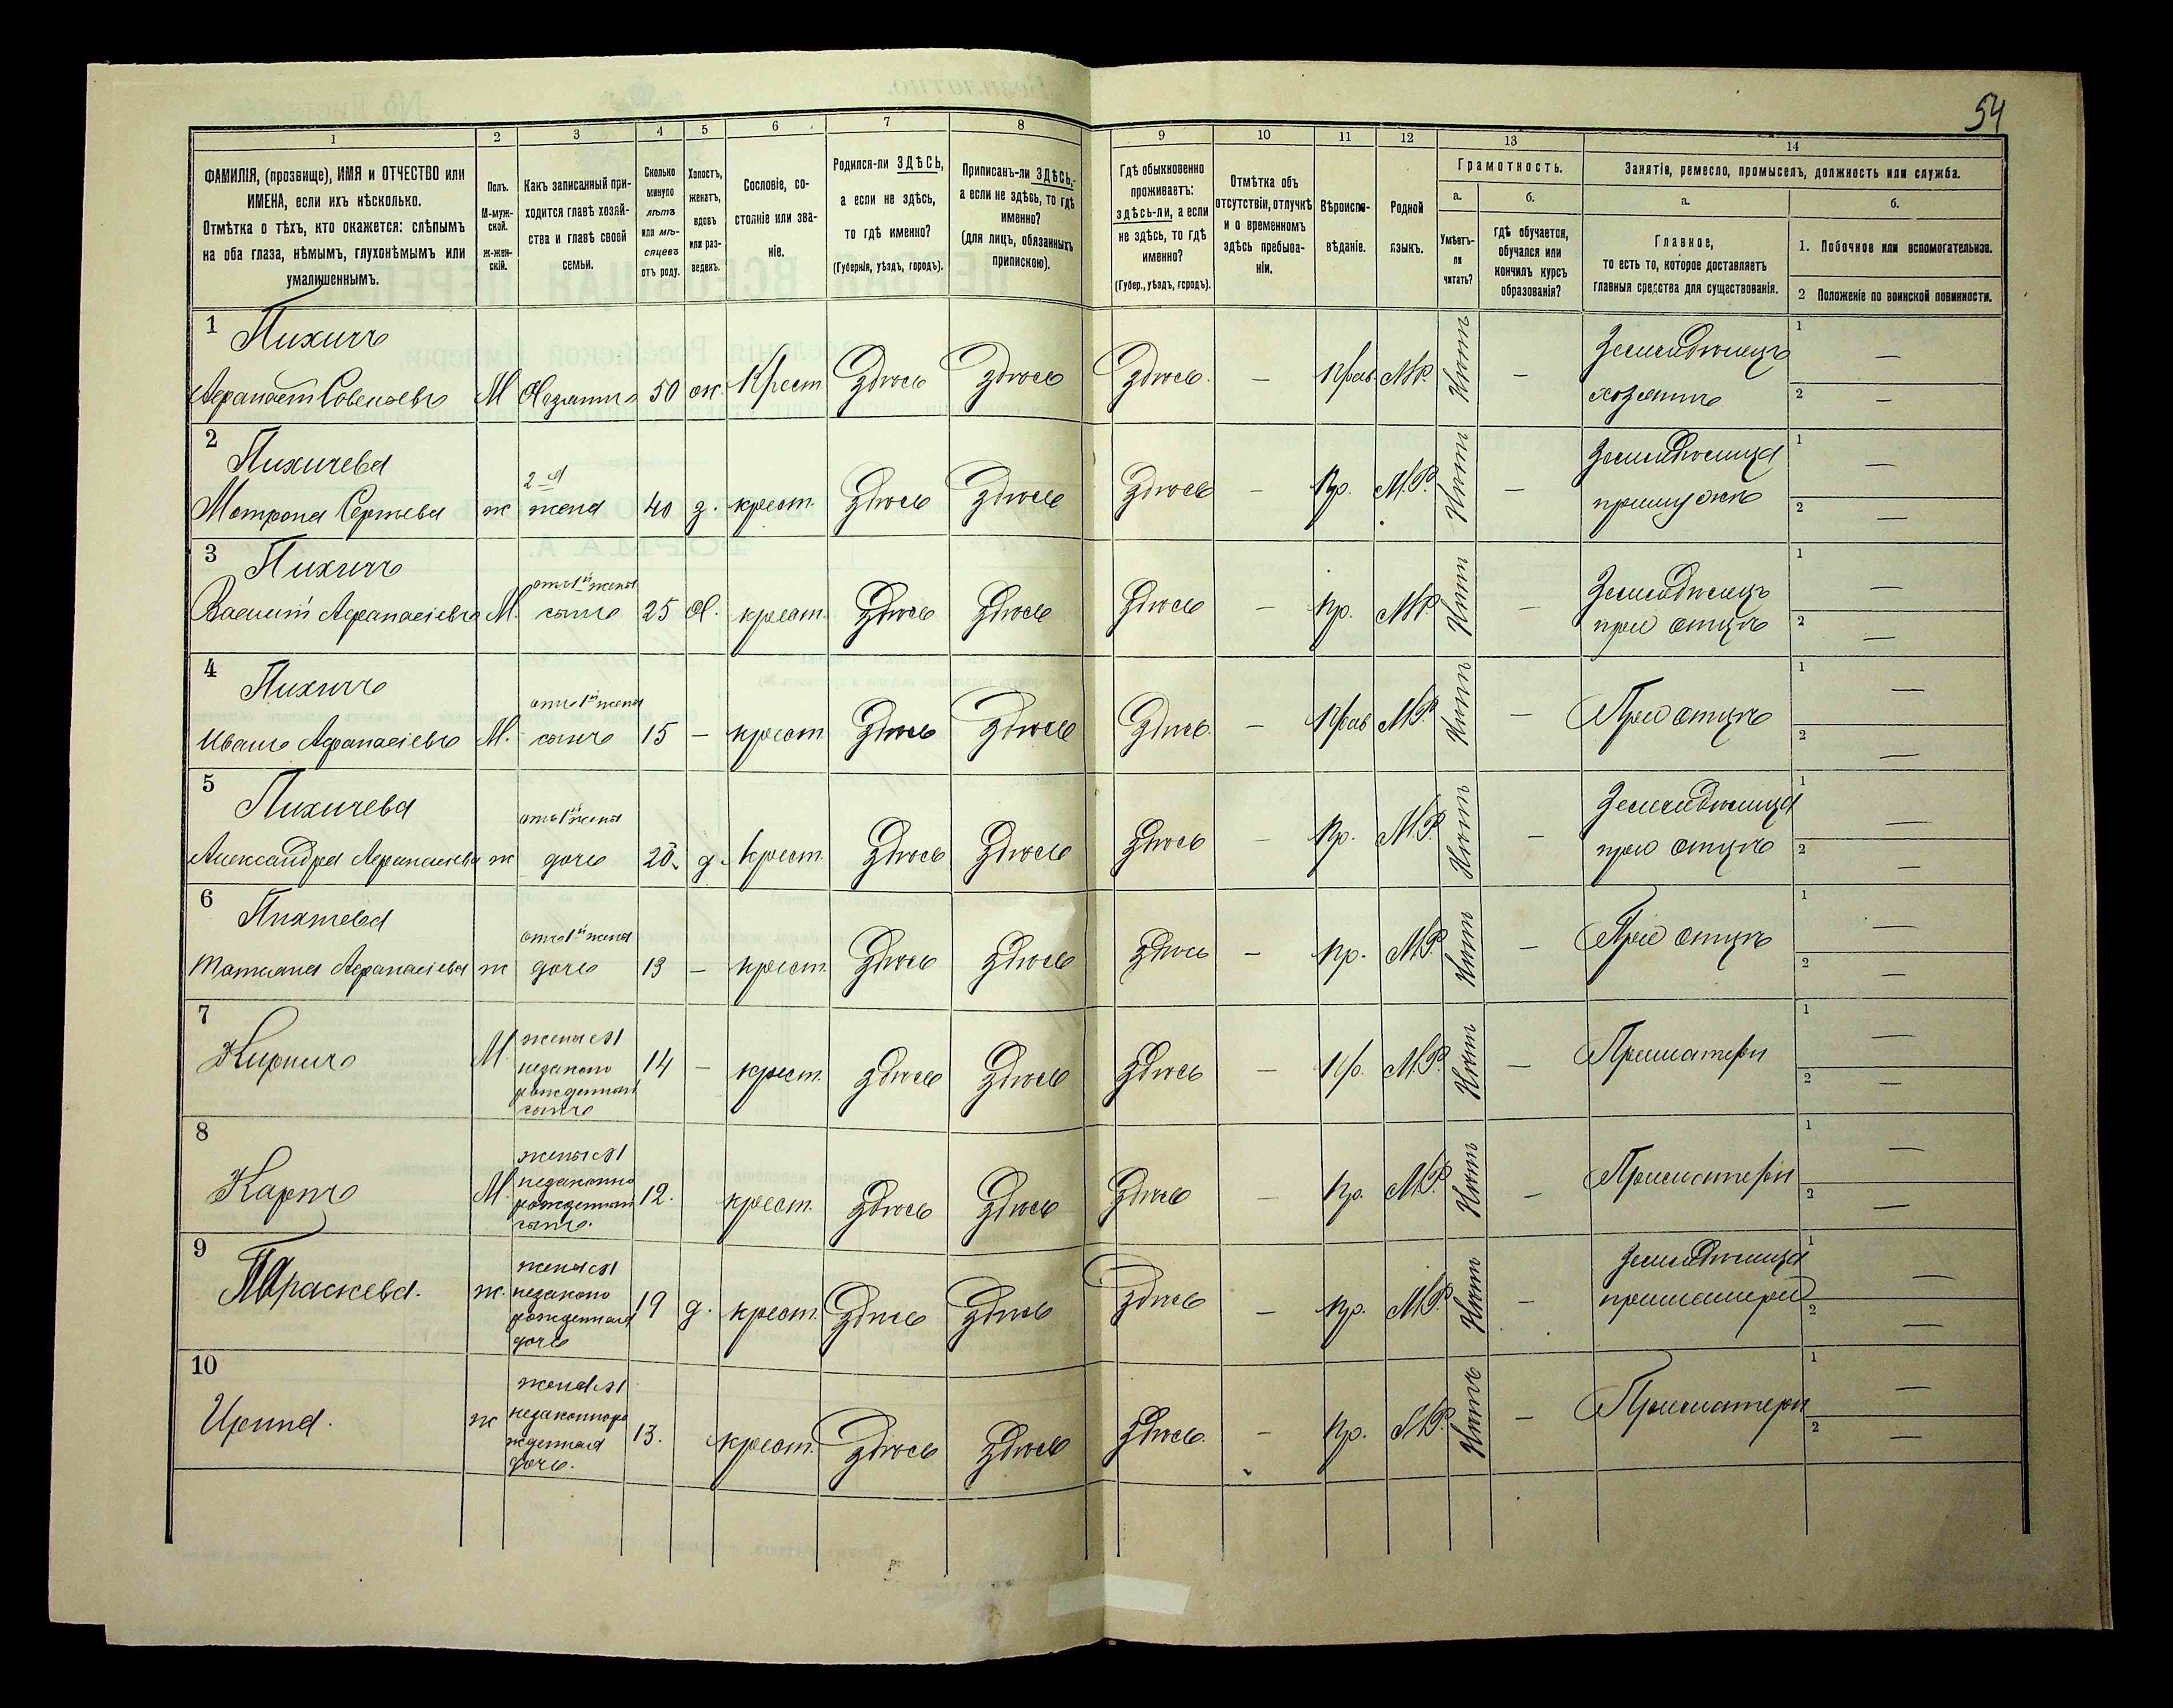 54
1 2 3 4 5 6 7 8 9 10 11 12 13 14
ФАМИЛІЯ, (прозвище), ИМЯ и ОТЧЕСТВО или
ИМЕНА, если ихъ нѣсколько.
Отмѣтка о тѣхъ, кто окажется: слѣпымъ
на оба глаза, нѣмымъ, глухонѣмымъ или
умалишеннымъ.
Полъ.
М-муж-
ской.
ж-жен-
скій.
Какъ записанный при-
ходится главѣ хозяй-
ства и главѣ своей
семьи.
Сколько
минуло
лѣтъ
или мѣ-
сяцевъ
отъ роду.
Холостъ,
женатъ,
вдовъ
или раз-
веденъ.
Сословіе, со-
стояніе или зва-
ніе.
Родился-ли ЗДѢСЬ,
а если не здѣсь,
то гдѣ именно?
(Губернія, уѣздъ, городъ).
Приписанъ-ли ЗДѢСЬ,
а если не здѣсь, то гдѣ
именно?
(для лицъ, обязанныхъ
припискою).
Гдѣ обыкновенно
проживаетъ:
здѣсь-ли, а если
не здѣсь, то гдѣ
именно?
(Губер., уѣздъ, городъ).
Отмѣтка объ
отсутствіи, отлучкѣ
и о временномъ
здѣсь пребыва-
ніи.
Вѣроиспо-
вѣданіе.
Родной
языкъ.
Грамотность.
а. б.
Умѣетъ-
ли
читать?
гдѣ обучается,
обучался или
кончилъ курсъ
образованія?
Занятіе, ремесло, промыселъ, должность или служба.
а. б.
Главное,
то есть то, которое доставляетъ
главныя средства для существованія.
1. Побочное или вспомогательное.
2 Положеніе по воинской повинности.
1 Пихичъ
М Хозяинъ 50 ж. Крест. Здѣсь Здѣсь Здѣсь. — Прав. М.Р. Нѣтъ — Земледѣлецъ 1 —
хозяинъ 2 —
2 Пихичева
2-я
Матрона Сергѣева ж жена 40 з. крест. Здѣсь Здѣсь Здѣсь — Пр. М.Р. Нѣтъ — Земледѣлица 1 —
при мужѣ 2 —
3 Пихичъ
отъ 1й жены
Василій Афанасіевъ М. сынъ 25 Х. крест. Здѣсь Здѣсь Здѣсь — Пр. М.Р. Нѣтъ — Земледѣлецъ 1 —
при отцѣ 2 —
4 Пихичъ
отъ 1й жены
Иванъ Афанасіевъ М. сынъ 15 — крест Здѣсь Здѣсь Здѣсь. — Прав М.Р. Нѣтъ — При отцѣ 1 —
2 —
5 Пихичева
отъ 1й жены
Александра Афанасіева ж дочь 20. д. Крест. Здѣсь Здѣсь Здѣсь — Пр. М.Р. Нѣтъ — Земледѣлица 1 —
при отцѣ 2 —
6
отъ 1й жены
Татіана Афанасіева ж дочь 13 — крест. Здѣсь Здѣсь Здѣсь — Пр. М.Р. Нѣтъ — При отцѣ 1 —
2 —
7
М. жены ея
незаконо
рожденный
сынъ
14 — крест. Здѣсь Здѣсь Здѣсь — Пр. М.Р. Нѣтъ — При матери 1 —
2 —
8 Карпъ
М. жены ея
незаконно
рожденный
сынъ.
12. крест. Здѣсь Здѣсь Здѣсь — Пр. М.Р. Нѣтъ — При матери 1 —
2 —
9 Параскева.
ж. жены ея
незаконо
рожденная
дочь
19 д. крест. Здѣсь Здѣсь Здѣсь — Пр. М.Р. Нѣтъ — Земледѣлица 1 —
при матери 2 —
10 Ирина.
ж жены ея
незаконноро
жденная
дочь.
13. крест. Здѣсь Здѣсь Здѣсь. — Пр. М.Р. Нѣтъ — При матери 1 —
2 —